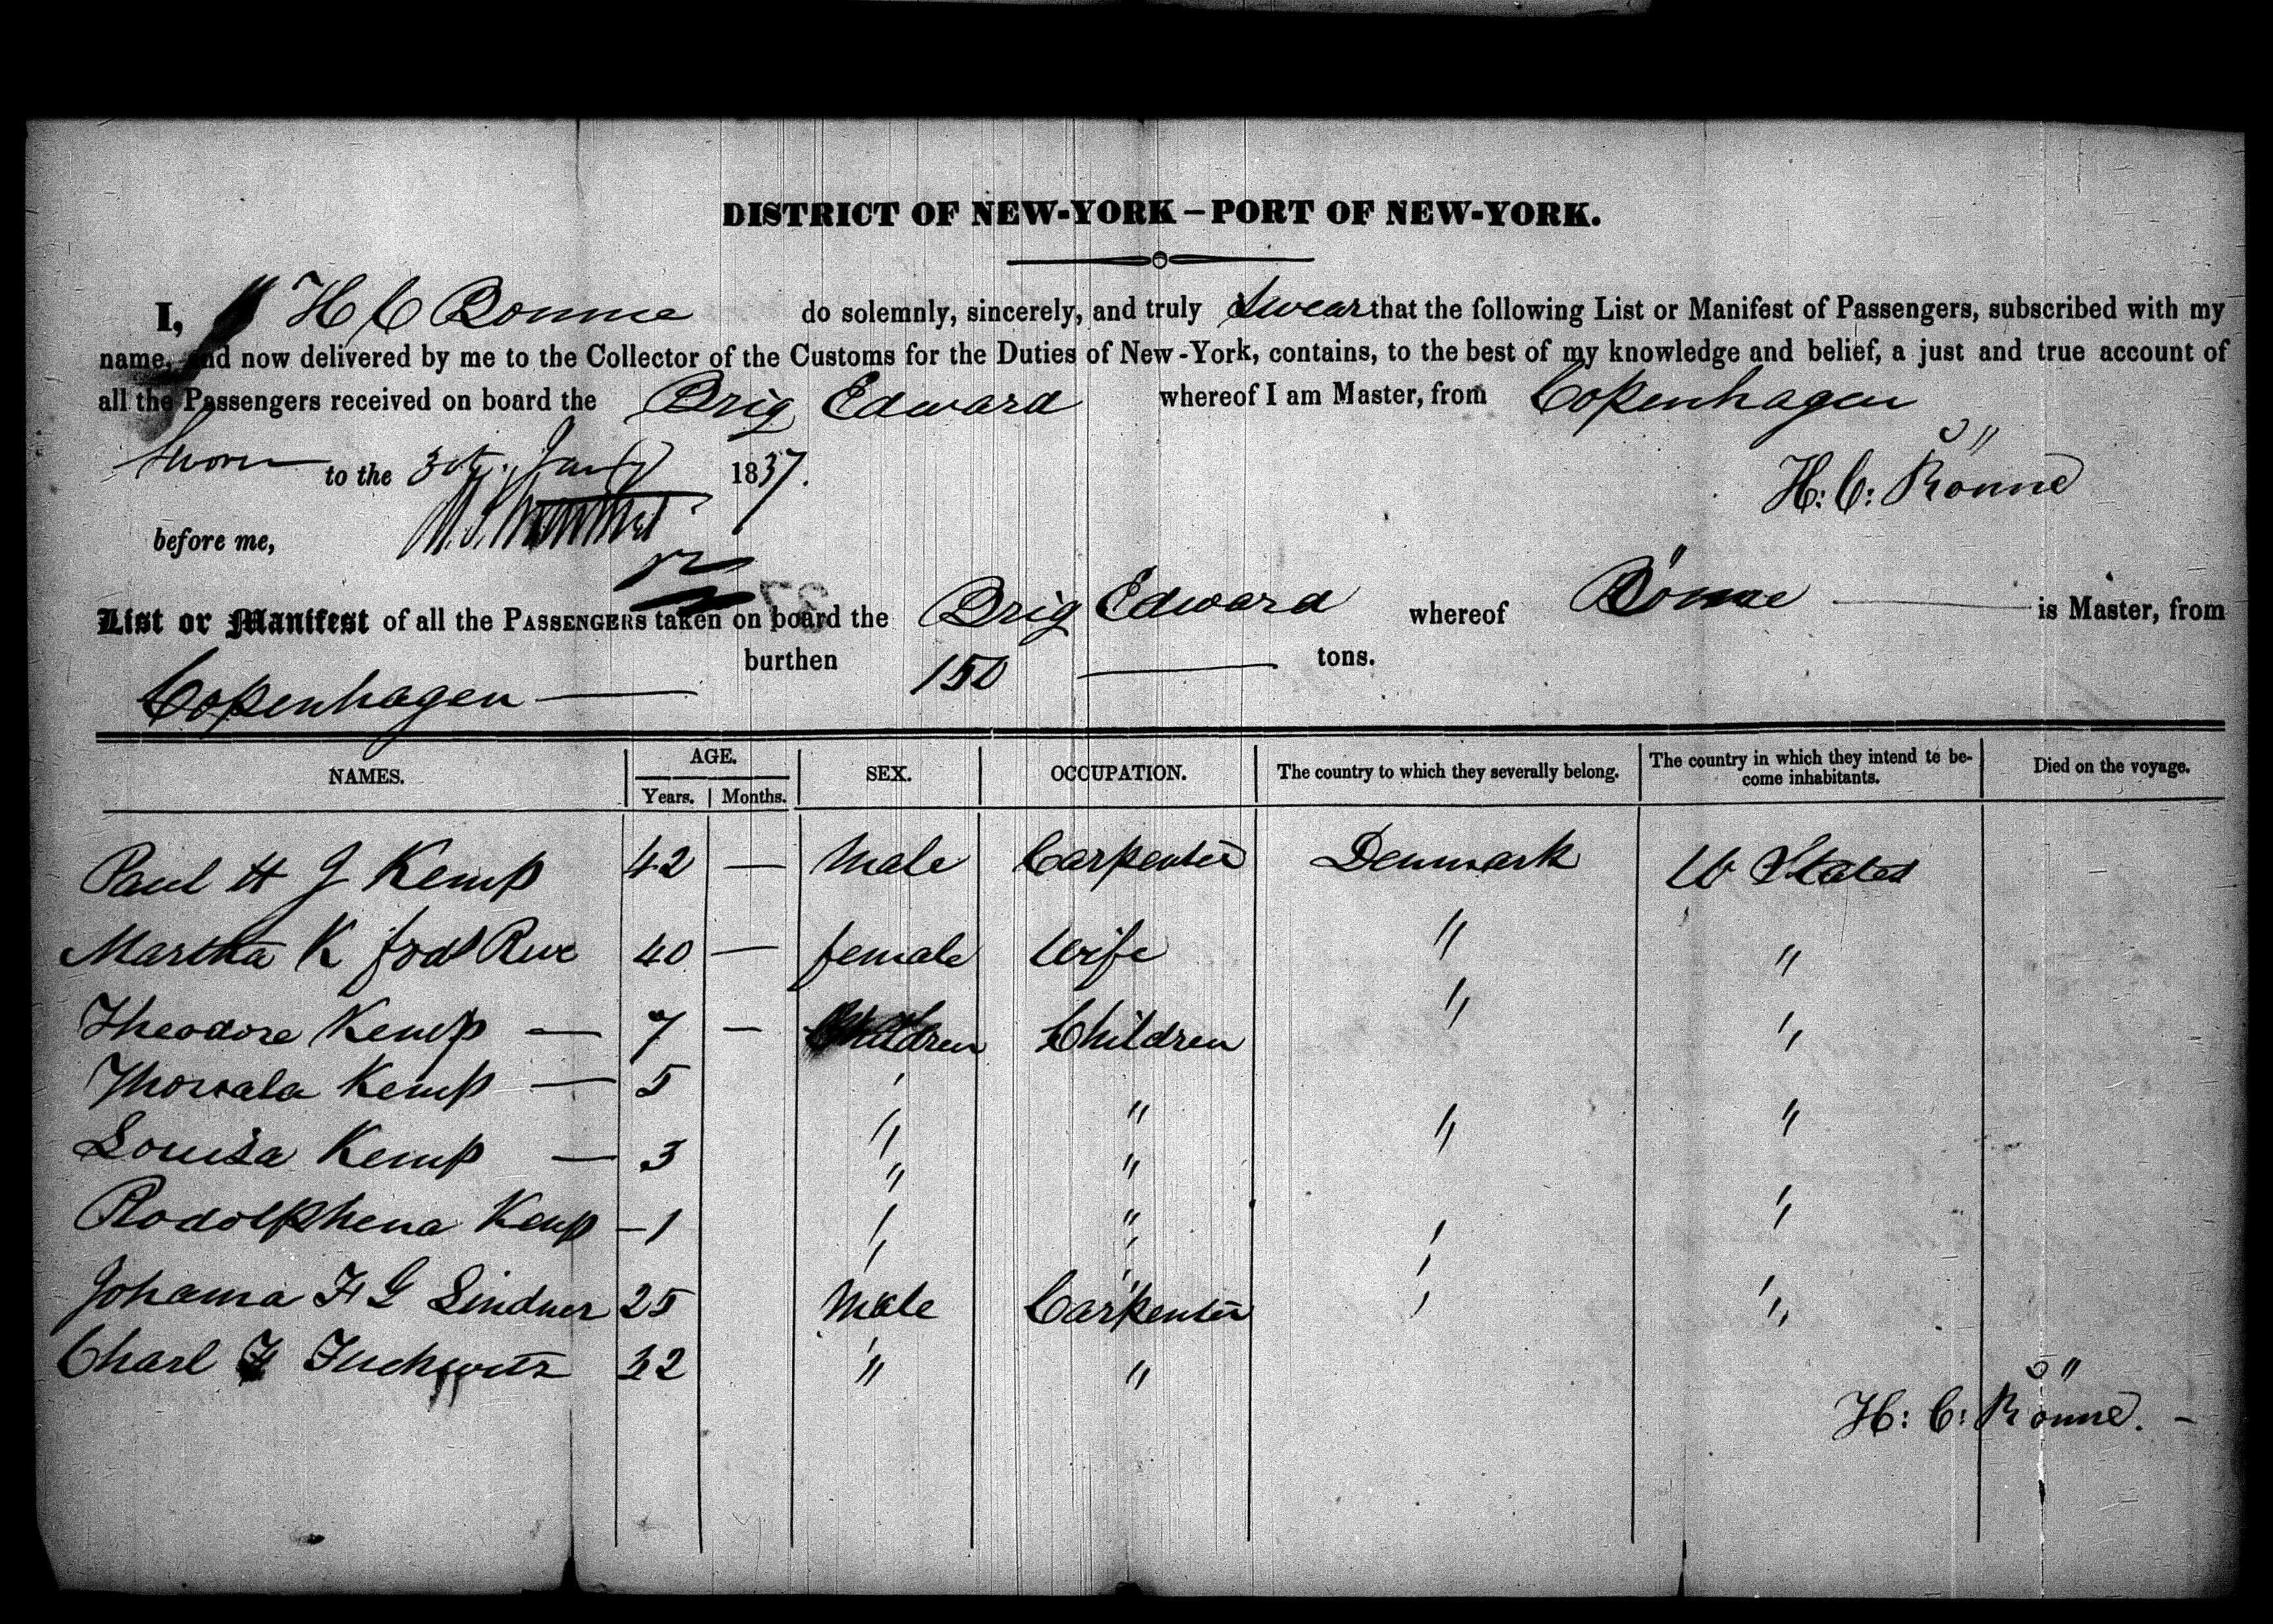 DISTRICT OF NEW-YORK – PORT OF NEW-YORK.
I, H C Ronne do solemnly, sincerely, and truly Swear that the following List or Manifest of Passengers, subscribed with my
name, and now delivered by me to the Collector of the Customs for the Duties of New-York, contains, to the best of my knowledge and belief, a just and true account of
all the Passengers received on board the Brig Edward whereof I am Master, from Copenhagen
Sworn to the 1837.
H: C: Rönne
before me,
37
List or Manifest of all the PASSENGERS taken on board the Brig Edward whereof Rönne is Master, from
Copenhagen burthen 150 tons.
NAMES. AGE. Years. Months. SEX. OCCUPATION. The country to which they severally belong. The country in which they intend to become inhabitants. Died on the voyage.
Paul H J Kemp 42 — Male Carpenter Denmark U States
Martha K 40 — female Wife " "
Theodore Kemp — 7 — Children Children " "
Kemp — 5 " " " "
Louisa Kemp — 3 " " "
Rodolphena Kemp — 1 " " " "
Johanna F G Lindner 25 Male Carpenter " "
Charl F 32 " "
H: C: Rönne. –